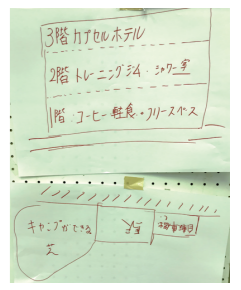 3階 カプセルホテル
2階 トレーニングジム・シャワー室
1階:コーヒー軽食・フリースペース
キャンプができる
芝